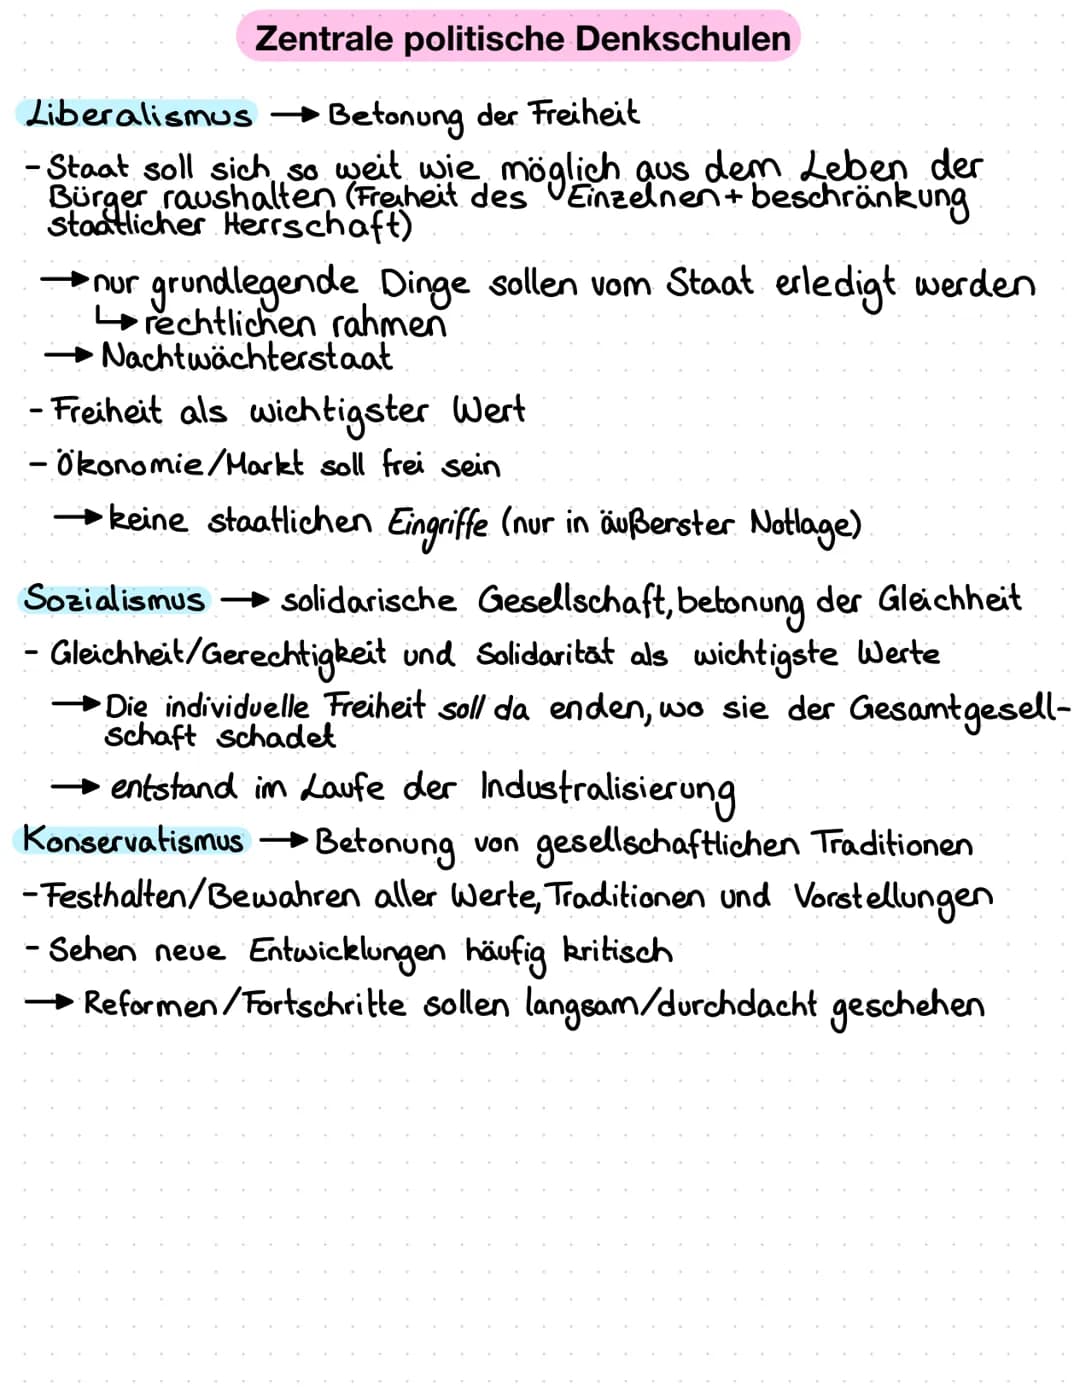 Zentrale politische Denkschulen
Liberalismus → Betonung der Freiheit
- Staat soll sich so weit wie möglich aus dem Leben der
Bürger raushalten (Freiheit des Einzelnen + beschränkung
staatlicher Herrschaft)
→ nur grundlegende Dinge sollen vom Staat erledigt werden
↳ rechtlichen rahmen
→ Nachtwächterstaat
- Freiheit als wichtigster Wert
- Ökonomie/Markt soll frei sein
→ keine staatlichen Eingriffe (nur in äußerster Notlage)
Sozialismus → solidarische Gesellschaft, betonung der Gleichheit
- Gleichheit/Gerechtigkeit und Solidarität als wichtigste Werte
→ Die individuelle Freiheit soll da enden, wo sie der Gesamtgesell-
schaft schadet
→ entstand im Laufe der Industralisierung
Konservatismus → Betonung von gesellschaftlichen Traditionen
- Festhalten/Bewahren aller Werte, Traditionen und Vorstellungen
- Sehen neue Entwicklungen häufig kritisch
→ Reformen/Fortschritte sollen langsam/durchdacht geschehen